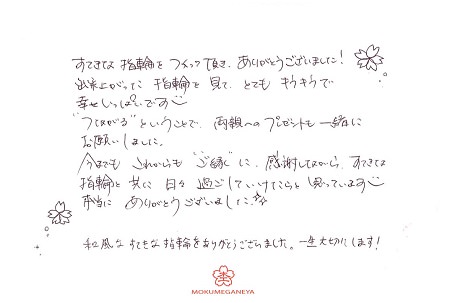 すてきな指輪をつくって頂き、ありがとうございました！
出来上がった指輪を見て、とてもキラキラで
幸せいっぱいです
"つながる"ということで、両親へのプレゼントも一緒に
お願いしました。
今までもこれからも"ご縁"に、感謝しながら、すてきな
指輪と共に日々過ごしていけたらと思っています
本当にありがとうございました
和風なすてきな指輪をありがとうございました。一生大切にします！
MOKUMEGANEYA